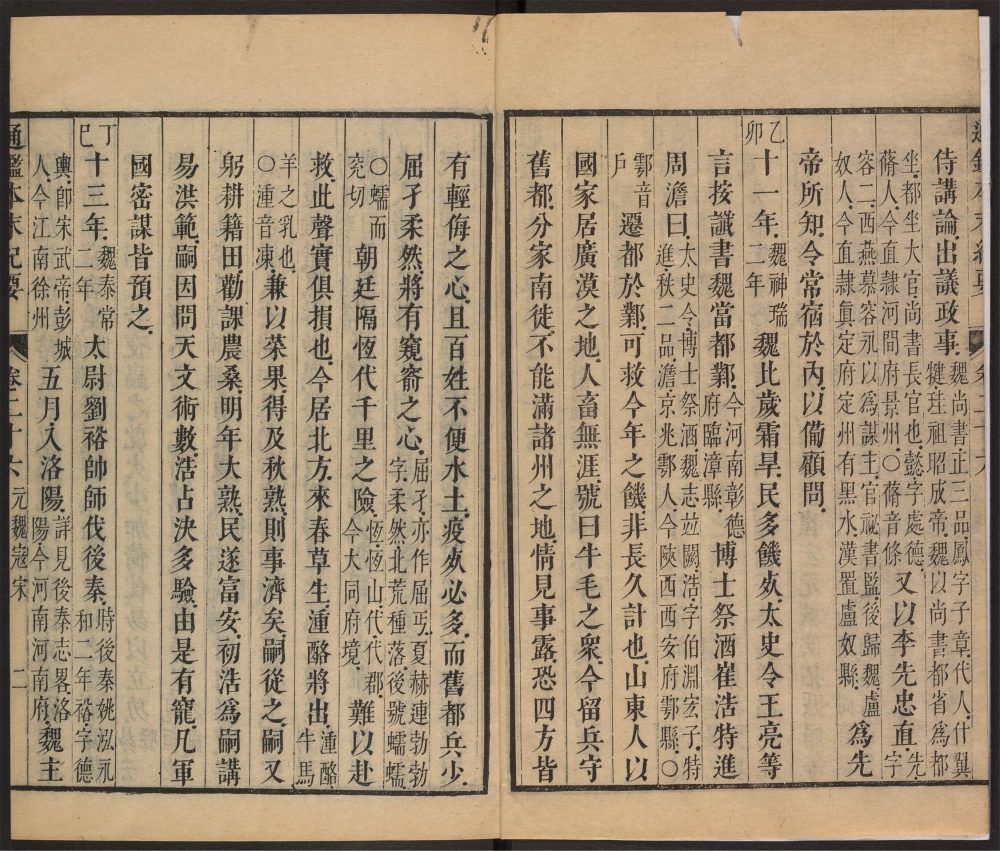 侍講論出議政事魏尚書正三品鳳字子章代人什翼犍珪祖昭成帝魏以尚書都省為都
坐都坐大官尚書長官也懿字處德蓨人今直隷河間府景州○蓨音條又以李先忠直先字
容二西燕慕容永以爲謀主官祕書監後歸魏盧奴人今直隷眞定府定州有黑水漢置盧奴縣爲先
帝所知令常宿於內以備顧問
乙卯十一年魏神瑞二年魏比歲霜旱民多饑死太史令王亮等
言按讖書魏當都鄴今河南彰德府臨漳縣博士祭酒崔浩特進
周澹曰太史令博士祭酒魏志竝闕浩字伯淵宏子特進秩二品澹京兆鄠人今陝西西安府鄠縣○
鄠音戶遷都於鄴可救今年之饑非長久計也山東人以
國家居廣漠之地人畜無涯號曰牛毛之衆今留兵守
舊都分家南徙不能滿諸州之地情見事露恐四方皆
有輕侮之心且百姓不便水土疫死必多而舊都兵少
屈孑柔然將有窺窬之心屈孑亦作屈丐夏赫連勃勃字柔然北荒種落後號蠕蠕
○蠕而兖切朝廷隔恆代千里之險恆恆山代代郡今大同府境難以赴
救此聲實俱損也今居北方來春草生湩酪將出湩酪牛馬
羊之乳也○湩音凍兼以菜果得及秋熟則事濟矣嗣從之嗣又
躬耕籍田勸課農桑明年大熟民遂富安初浩爲嗣講
易洪範嗣因問天文術數浩占決多驗由是有寵凡軍
國密謀皆預之
丁巳十三年魏泰常二年太尉劉裕帥師伐後秦時後秦姚泓永和二年裕字德
輿卽宋武帝彭城人今江南徐州五月入洛陽詳見後秦志畧洛陽今河南河南府魏主
通鑑本末紀要 卷二十六 元魏寇宋 二